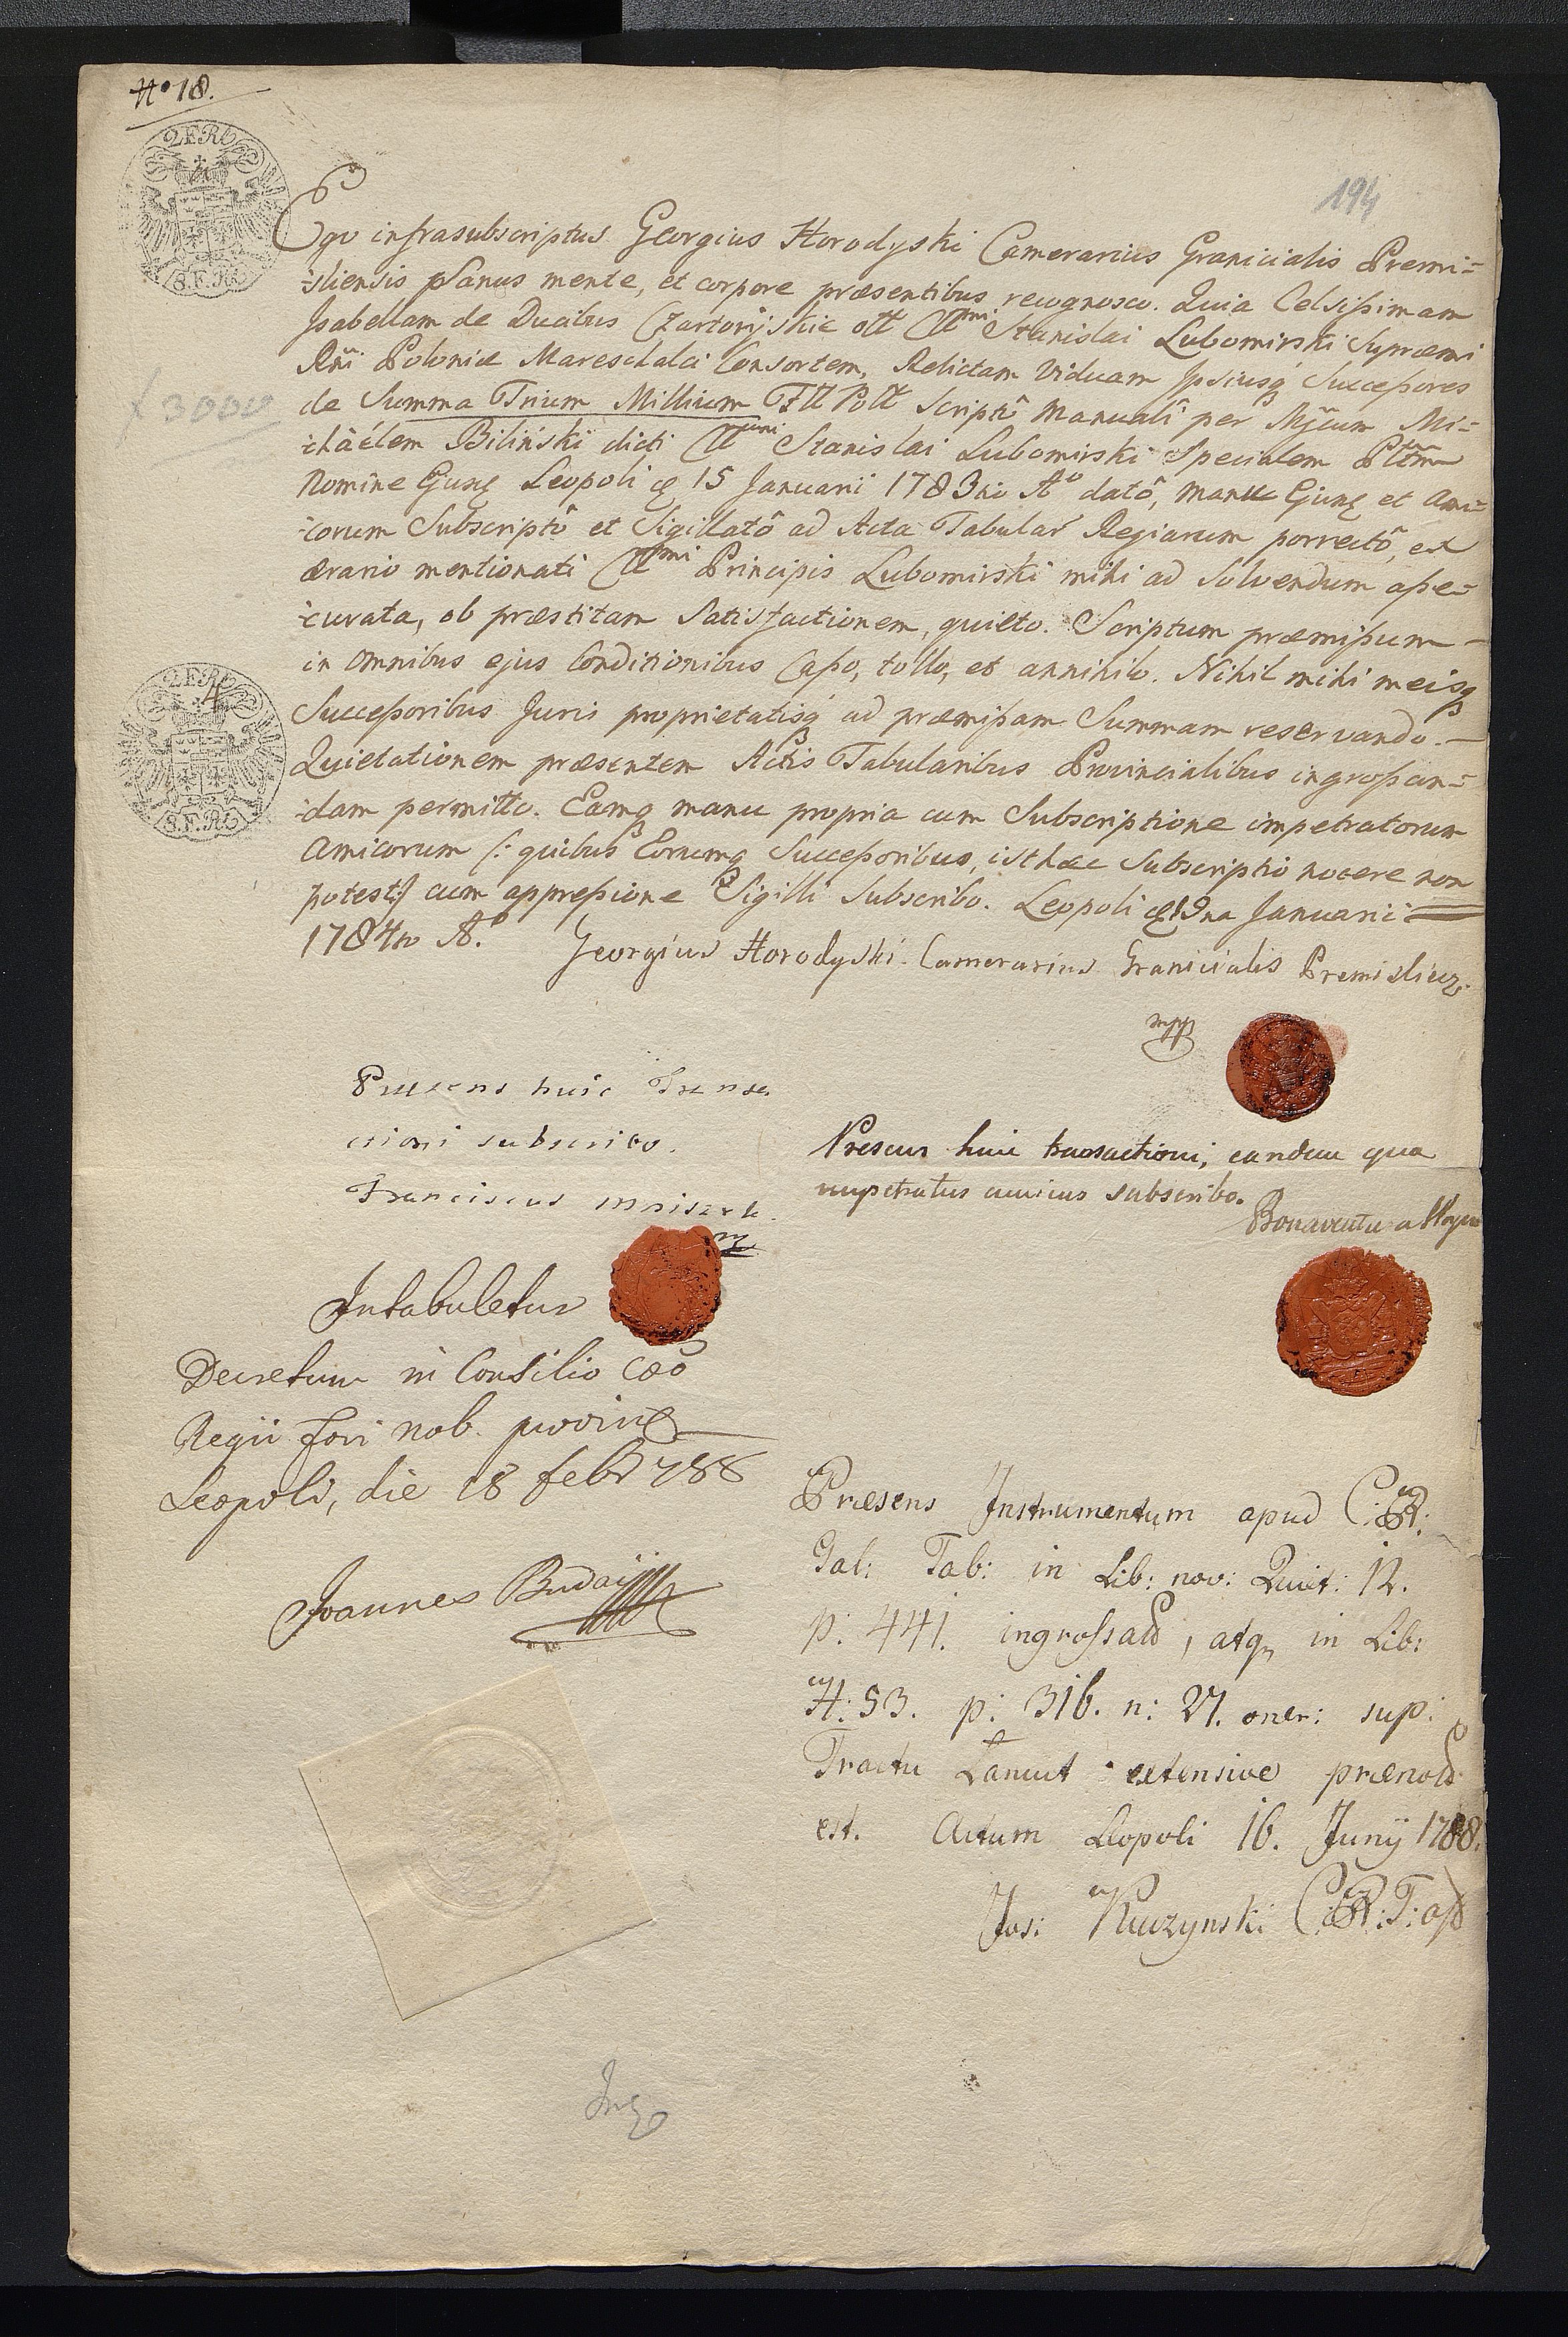 No 18.
2 F. R.
8. F. R.
194
Ego infrasubscriptus Georgius Horodyski Camerarius Granicialis Premi=
=sliensis Sanus mente, et corpore præsentibus recognosco. Quia Celsissimam
Isabellam de Ducibus Czartoryskie olt Cllmi Stanislai Lubomirski Supræmi
Rñi Poloniæ Mareschalci Consortem, Relictam Viduam Ipsiusq Successores
f 3000
de Summa Trium Millium Flt Polt Scriptô Manualî per Mgcum Mi=
=chäélem Biliński dicti Cllmi Stanislai Lubomirski Specialem
Nomine Ejusq Leopoli 15 Januarii 1783tio Ao datô, manu Ejusq et Ami=
=corum Subscriptô et Sigillatô ad Acta Tabular Regiarum porrectô, ex
ærario mentionati Cllmi Principis Lubomirski mihi ad Solvendum asse=
=curata, ob præstitam Satisfactionem, quieto. Scriptum præmissum
in Omnibus ejus Conditionibus Casso, tollo, et annihilo. Nihil mihi meisq
Successoribus Juris proprietatisq ad præmissam Summam reservando.
2 F. R.
4
8. F. R.
Quietationem præsentem Actis Tabularibus Provincialibus ingrossan=
=dam permitto. Eamq manu propria cum Subscriptione impetratorum
Amicorum /: quibus Eorumq Successoribus, isthæc Subscriptio nocere non
potest :/ cum appressione Sigilli Subscribo. Leopoli 19na Januarii
1784to Ao.
Georgius Horodyski Camerarius Granicialis Premisliens.
mpp
Præsens huic Transa
ctioni subscribo.
Franciscus
mp
Presens huic transactioni, eandem qua
impetratus amicus subscribo.
Bonaventu a
Intabuletur
Decretum in Consilio Cæo
Regii fori nob. provinc
Leopoli, die 18 febr 788
Joannes Buday
Præsens Instrumentum apud C: R:
Gal: Tab: in Lib: nov: Quiet: 12.
p: 441. ingrossatd, atq in Lib:
H: 53. p: 316. n: 27. oner: sup:
Tractu Lancut extensive prænotd
est. Actum Leopoli 16. Junij 1788.
Jos: Kuczynski C: R: T:
Ing